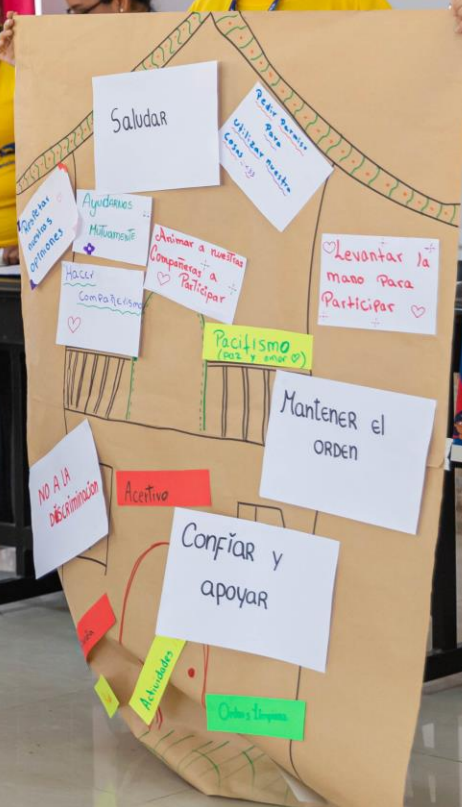 Saludar
Pedir permiso
Para
utilizar nuestra
cosas
Respetar
nuestras
opiniones
Ayudarnos
Mutuamente
Animar a nuestras
Compañeras a
Participar
Levantar la
mano Para
Participar
Hacer
Compañerismo
Pacifismo
(paz y amor)
Mantener el
orden
NO A LA
DISCRIMINACION
Acertivo
Confiar y
apoyar
Actividades
Orden y Limpieza